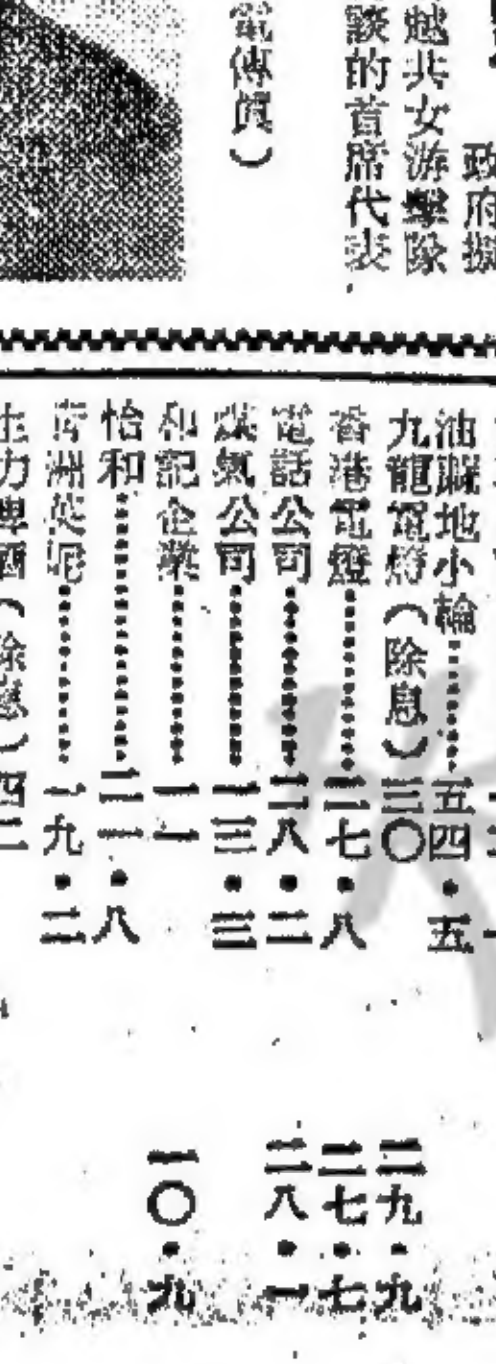 政府
越共女游擊隊
談的首席代表
電傳眞）
油蔴地小輪………五四・五
九龍電燈（除息）三〇　二九・九
香港電燈………二七・八　二七・七
電話公司………二八・二　二八・一
煤氣公司………一三・三
和記企業………一一　一〇・九
怡和………二一・八
青洲英坭………一九・二
生力啤酒（除息）四二